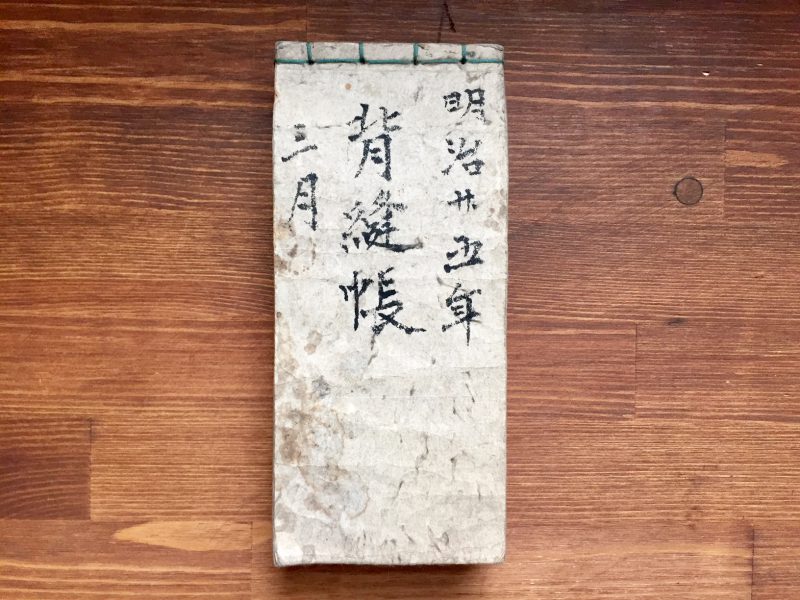 明治廿五年
背縫帳
三月